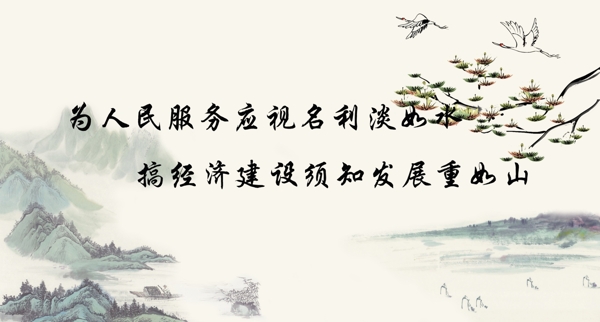 为人民服务应视名利淡如水
搞经济建设须知发展重如山